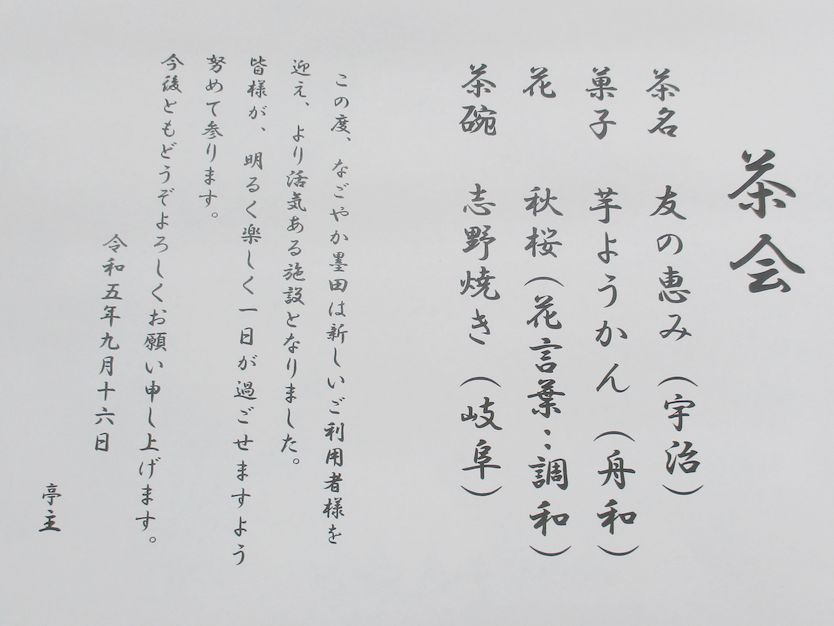 茶会
茶名　友の恵み（宇治）
菓子　芋ようかん（舟和）
花　秋桜（花言葉：調和）
茶碗　志野焼き（岐阜）
この度、なごやか墨田は新しいご利用者様を
迎え、より活気ある施設となりました。
皆様が、明るく楽しく一日が過ごせますよう
努めて参ります。
今後ともどうぞよろしくお願い申し上げます。
令和五年九月十六日
亭主